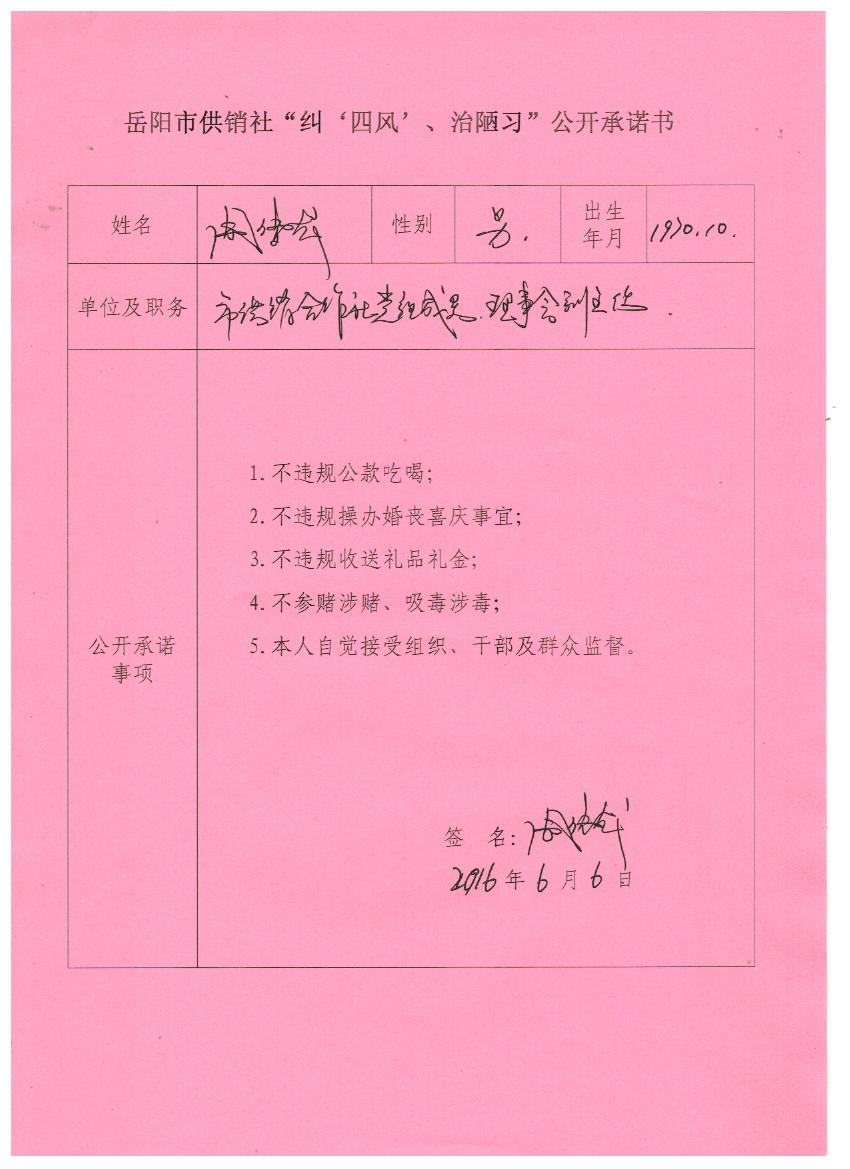 岳阳市供销社“纠‘四风’、治陋习”公开承诺书
姓名 周 性别 男. 出生年月 1970.10.
单位及职务 市供销合作社党组成员、理事会副主任.
公开承诺
事项
1. 不违规公款吃喝;
2. 不违规操办婚丧喜庆事宜;
3. 不违规收送礼品礼金;
4. 不参赌涉赌、吸毒涉毒;
5. 本人自觉接受组织、干部及群众监督。
签 名: 周
2016年6月6日